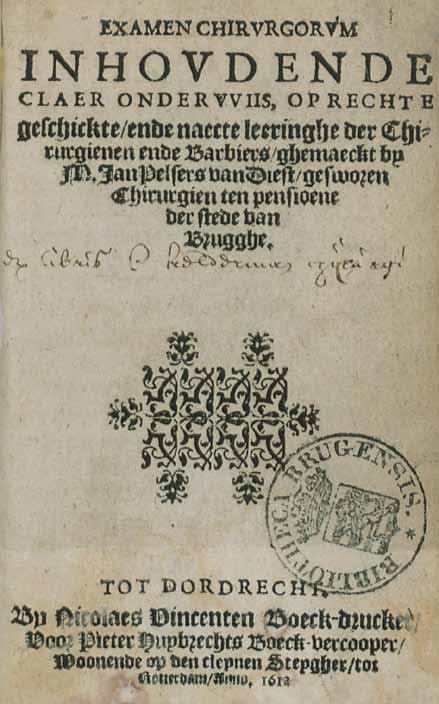 EXAMEN CHIRVRGORVM
INHOVDENDE
CLAER ONDERVVIIS, OPRECHTE
geschickte/ende naecte leeringhe der Chi-
rurgienen ende Barbiers/ghemaeckt by
M. Jan Pelsers van Diest/gesworen
Chirurgien ten pensioene
der stede van
Brugghe.
ex libris
BIBLIOTHECA BRUGENSIS. *
TOT DORDRECHT,
By Nicolaes Vincenten Boeck-drucker/
Voor Pieter Huybrechts Boeck-vercooper/
Woonende op den cleynen Steygher/tot
Rotterdam/Anno. 1612